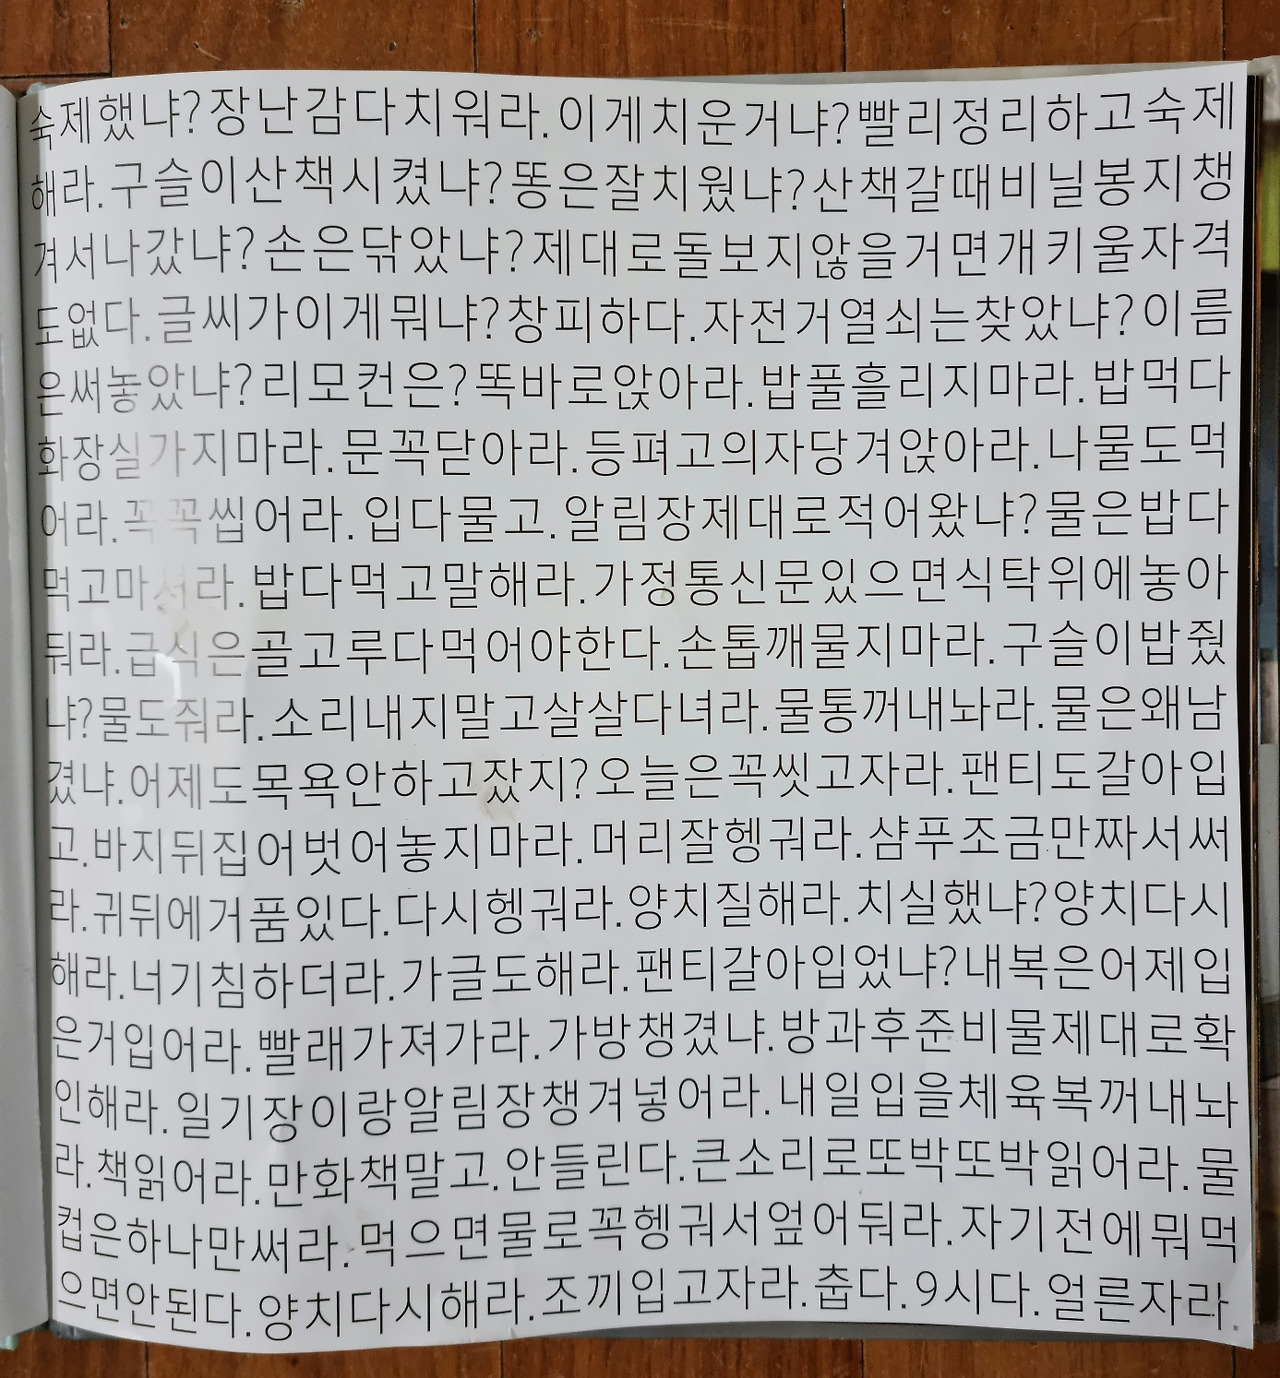 숙제했냐?장난감다치워라.이게치운거냐?빨리정리하고숙제
해라.구슬이산책시켰냐?똥은잘치웠냐?산책갈때비닐봉지챙
겨서나갔냐?손은닦았냐?제대로돌보지않을거면개키울자격
도없다.글씨가이게뭐냐?창피하다.자전거열쇠는찾았냐?이름
은써놓았냐?리모컨은?똑바로앉아라.밥풀흘리지마라.밥먹다
화장실가지마라.문꼭닫아라.등펴고의자당겨앉아라.나물도먹
어라.꼭꼭씹어라.입다물고.알림장제대로적어왔냐?물은밥다
먹고마셔라.밥다먹고말해라.가정통신문있으면식탁위에놓아
둬라.급식은골고루다먹어야한다.손톱깨물지마라.구슬이밥줬
냐?물도줘라.소리내지말고살살다녀라.물통꺼내놔라.물은왜남
겼냐.어제도목욕안하고잤지?오늘은꼭씻고자라.팬티도갈아입
고.바지뒤집어벗어놓지마라.머리잘헹궈라.샴푸조금만짜서써
라.귀뒤에거품있다.다시헹궈라.양치질해라.치실했냐?양치다시
해라.너기침하더라.가글도해라.팬티갈아입었냐?내복은어제입
은거입어라.빨래가져가라.가방챙겼냐.방과후준비물제대로확
인해라.일기장이랑알림장챙겨넣어라.내일입을체육복꺼내놔
라.책읽어라.만화책말고.안들린다.큰소리로또박또박읽어라.물
컵은하나만써라.먹으면물로꼭헹궈서엎어둬라.자기전에뭐먹
으면안된다.양치다시해라.조끼입고자라.춥다.9시다.얼른자라.